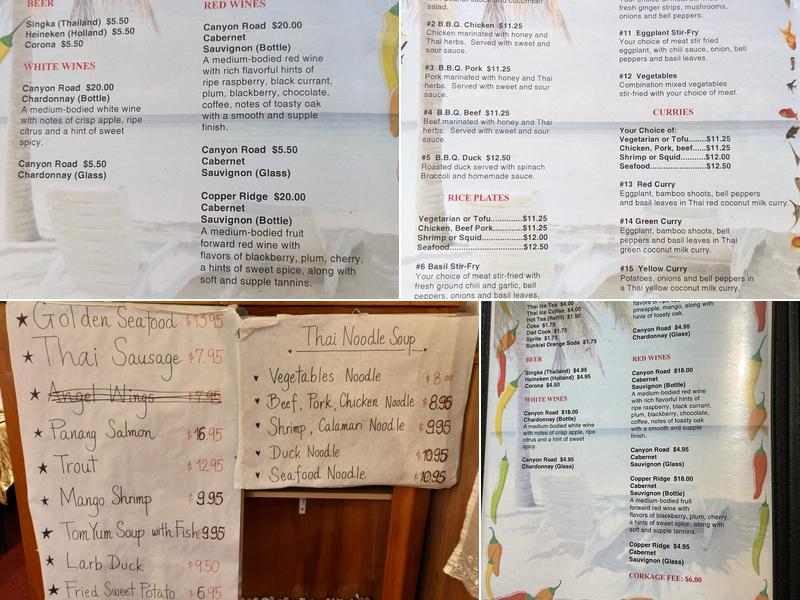 BEER
Singka (Thailand) $5.50
Heineken (Holland) $5.50
Corona $5.50
WHITE WINES
Canyon Road $20.00
Chardonnay (Bottle)
A medium-bodied white wine
with notes of crisp apple, ripe
citrus and a hint of sweet
spicy.
Canyon Road $5.50
Chardonnay (Glass)
RED WINES
Canyon Road $20.00
Cabernet
Sauvignon (Bottle)
A medium-bodied red wine
with rich flavorful hints of
ripe raspberry, black currant,
plum, blackberry, chocolate,
coffee, notes of toasty oak
with a smooth and supple
finish.
Canyon Road $5.50
Cabernet
Sauvignon (Glass)
Copper Ridge $20.00
Cabernet
Sauvignon (Bottle)
A medium-bodied fruit
forward red wine with
flavors of blackberry, plum, cherry,
a hints of sweet spice, along with
soft and supple tannins.
salad.
#2 B.B.Q. Chicken $11.25
Chicken marinated with honey and
Thai herbs. Served with sweet and
sour sauce.
#3 B.B.Q. Pork $11.25
Pork marinated with honey and Thai
herbs. Served with sweet and sour
sauce.
#4 B.B.Q. Beef $11.25
Beef marinated with honey and Thai
herbs. Served with sweet and sour
sauce.
#5 B.B.Q. Duck $12.50
Roasted duck served with spinach
Broccoli and homemade sauce.
RICE PLATES
Vegetarian or Tofu.............$11.25
Chicken, Beef Pork.............$11.25
Shrimp or Squid.............$12.00
Seafood.............$12.50
#6 Basil Stir-Fry
Your choice of meat stir-fried with
fresh ground chili and garlic, bell
peppers, onions and basil leaves.
fresh ginger strips, mushrooms,
onions and bell peppers.
#11 Eggplant Stir-Fry
Your choice of meat stir fried
eggplant, with chili sauce, onion, bell
peppers and basil leaves.
#12 Vegetables
Combination mixed vegetables
stir-fried with your choice of meat.
CURRIES
Your Choice of:
Vegetarian or Tofu.......$11.25
Chicken, Pork, beef......$11.25
Shrimp or Squid..........$12.00
Seafood.......................$12.50
#13 Red Curry
Eggplant, bamboo shoots, bell peppers
and basil leaves in Thai red coconut milk curry.
#14 Green Curry
Eggplant, bamboo shoots, bell
peppers and basil leaves in Thai
green coconut milk curry.
#15 Yellow Curry
Potatoes, onions and bell peppers in
a Thai yellow coconut milk curry.
★ Golden Seafood $13.95
★ Thai Sausage $7.95
★ Angel Wings $7.95
★ Panang Salmon $16.95
★ Trout $12.95
★ Mango Shrimp $9.95
★ Tom Yum Soup with Fish $9.95
★ Larb Duck $9.50
★ Fried Sweet Potato $6.95
Thai Noodle Soup
♥ Vegetables Noodle $8.00
♥ Beef, Pork, Chicken Noodle $8.95
♥ Shrimp, Calamari Noodle $9.95
♥ Duck Noodle $10.95
♥ Seafood Noodle $10.95
Thai Ice Tea $4.00
Thai Ice Coffee $4.00
Hot Tea (Refill) $1.50
Coke $1.75
Diet Cook $1.75
Sprite $1.75
Sunkist Orange Soda $1.75
BEER
Singka (Thailand) $4.95
Heineken (Holland) $4.95
Corona $4.50
WHITE WINES
Canyon Road $18.00
Chardonnay (Bottle)
A medium-bodied white wine
with notes of crisp apple, ripe
citrus and a hint of sweet
spicy.
Canyon Road $4.95
Chardonnay (Glass)
pineapple, mango, along with
hints of toasty oak.
Canyon Road $4.95
Chardonnay (Glass)
RED WINES
Canyon Road $18.00
Cabernet
Sauvignon (Bottle)
A medium-bodied red wine
with rich flavorful hints of
ripe raspberry, black currant,
plum, blackberry, chocolate,
coffee, notes of toasty oak
with a smooth and supple
finish.
Canyon Road $4.95
Cabernet
Sauvignon (Glass)
Copper Ridge $18.00
Cabernet
Sauvignon (Bottle)
A medium-bodied fruit
forward red wine with
flavors of blackberry, plum, cherry,
a hints of sweet spice, along with
soft and supple tannins.
Copper Ridge $4.95
Cabernet
Sauvignon (Glass)
CORKAGE FEE: $6.00